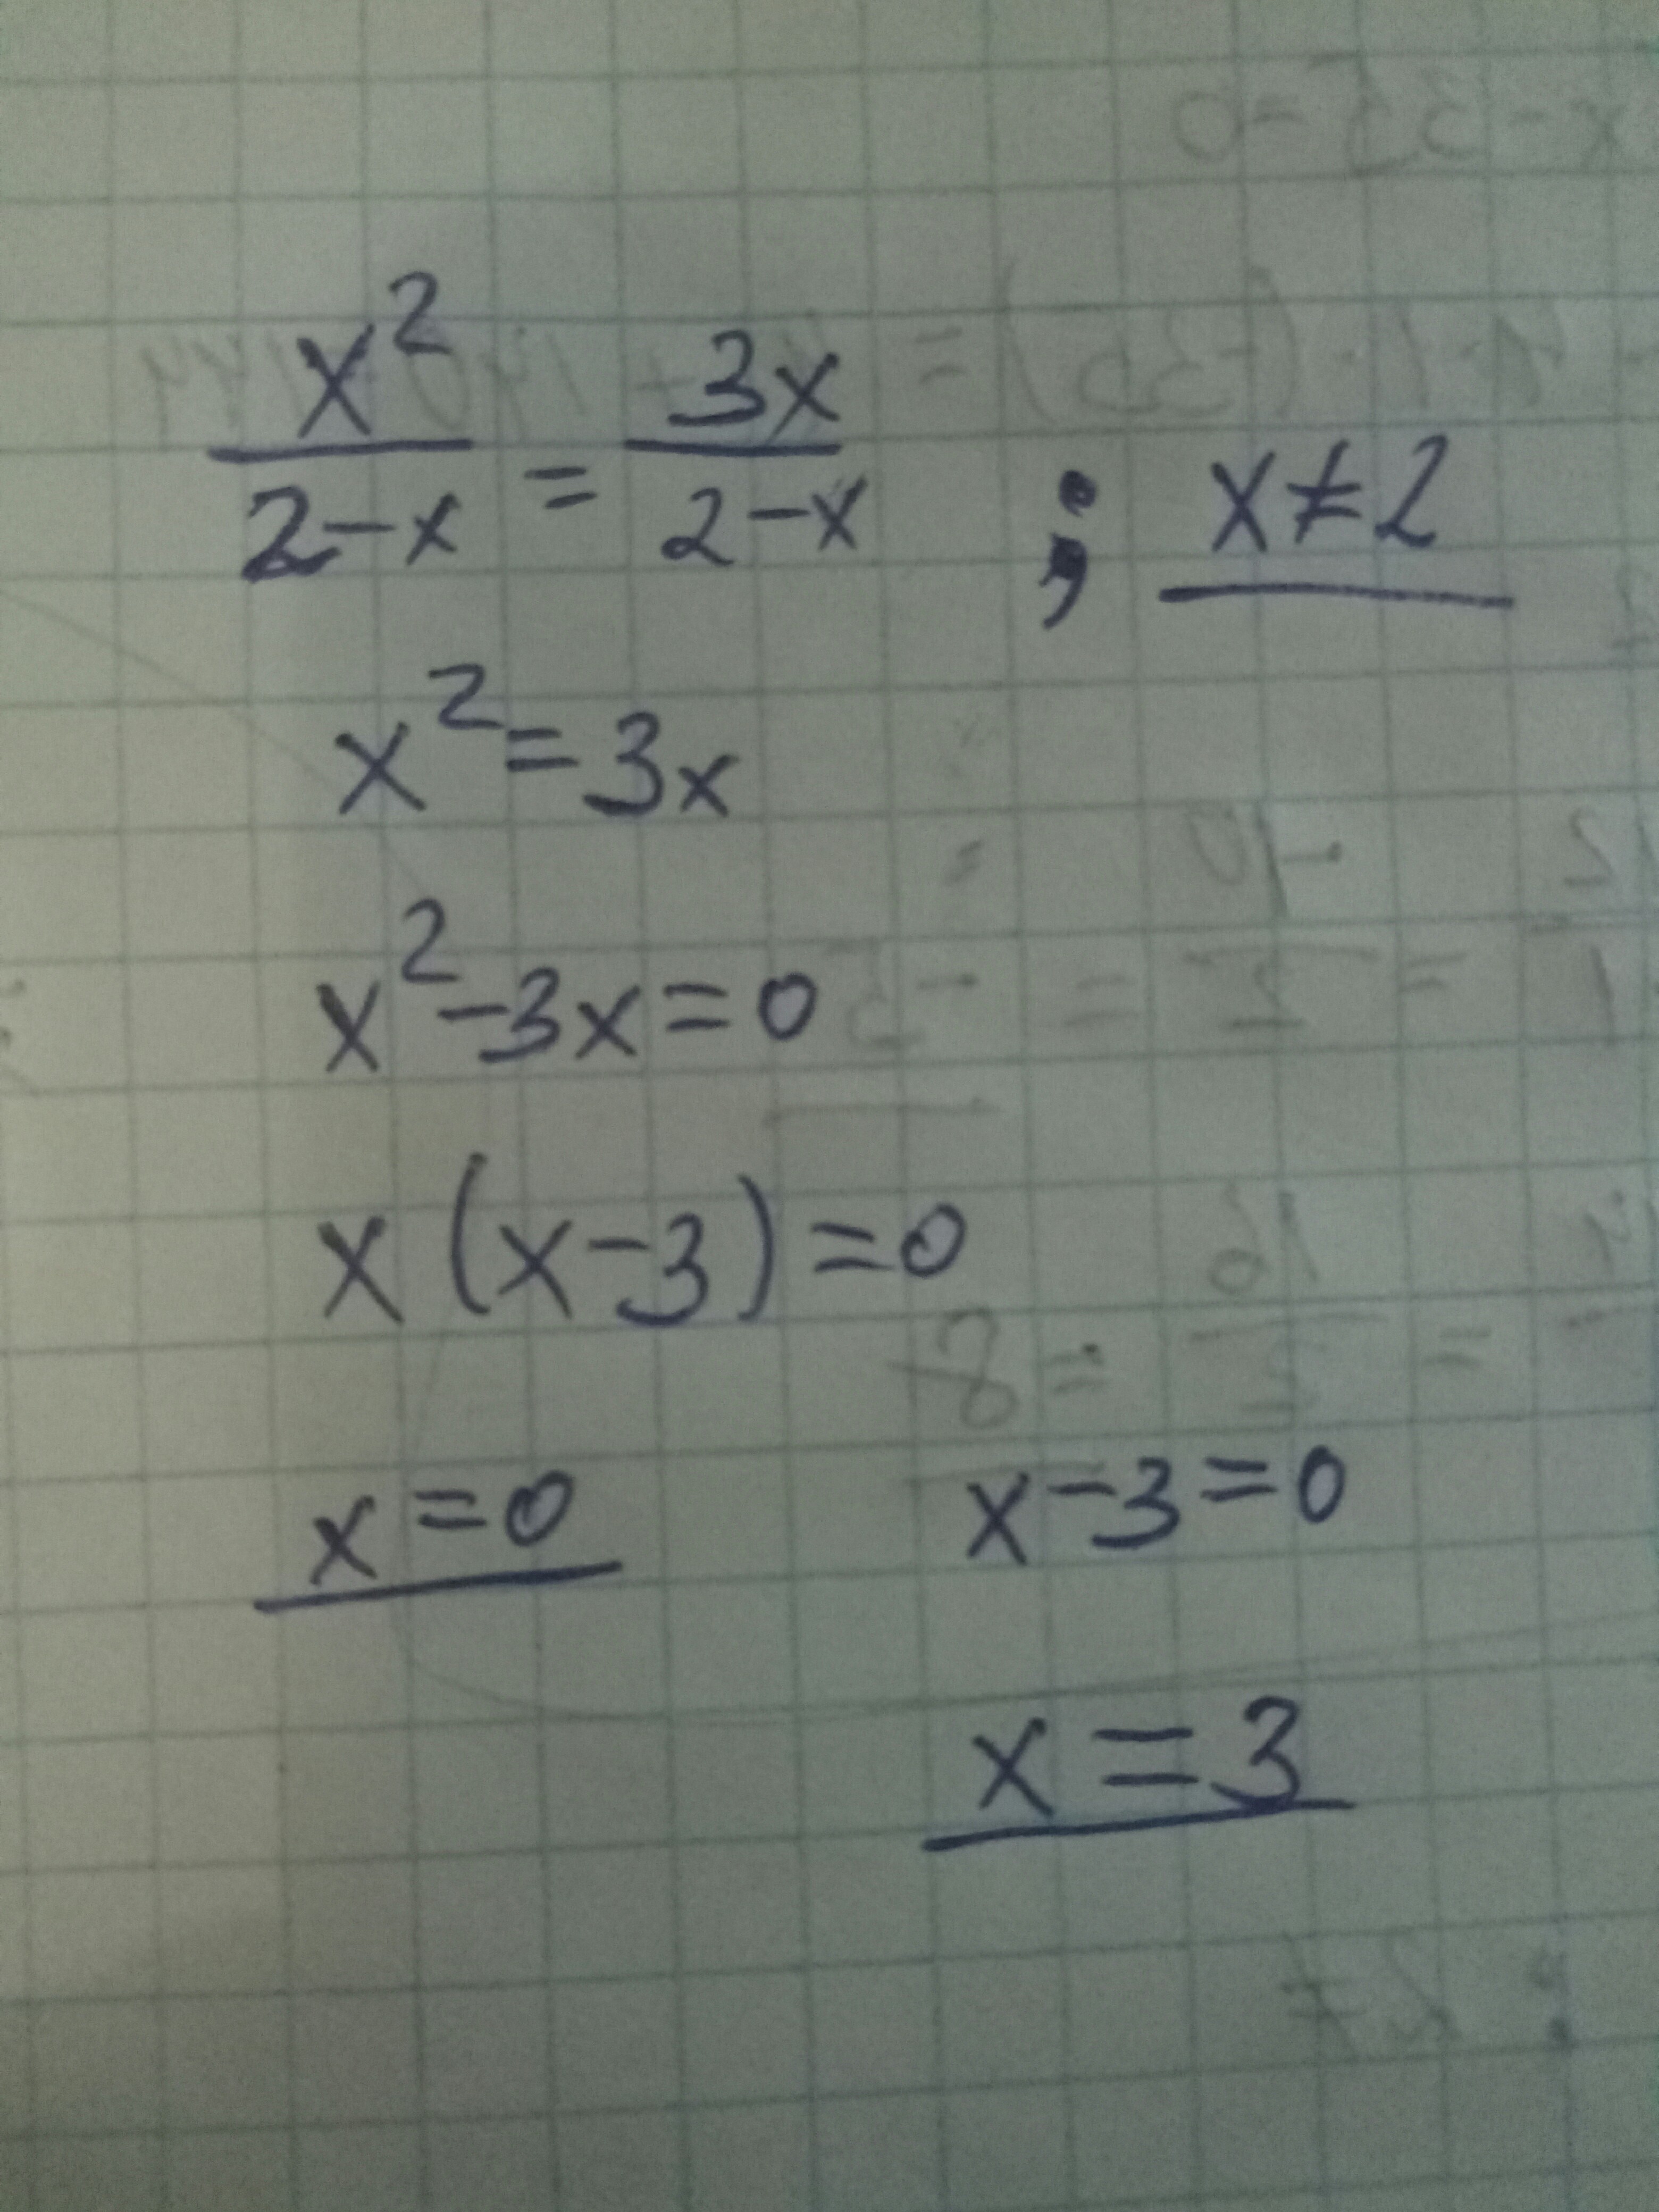 x²/(2-x) = 3x/(2-x) ; x≠2
x²=3x
x²-3x=0
x(x-3)=0
x=0 x-3=0
x=3